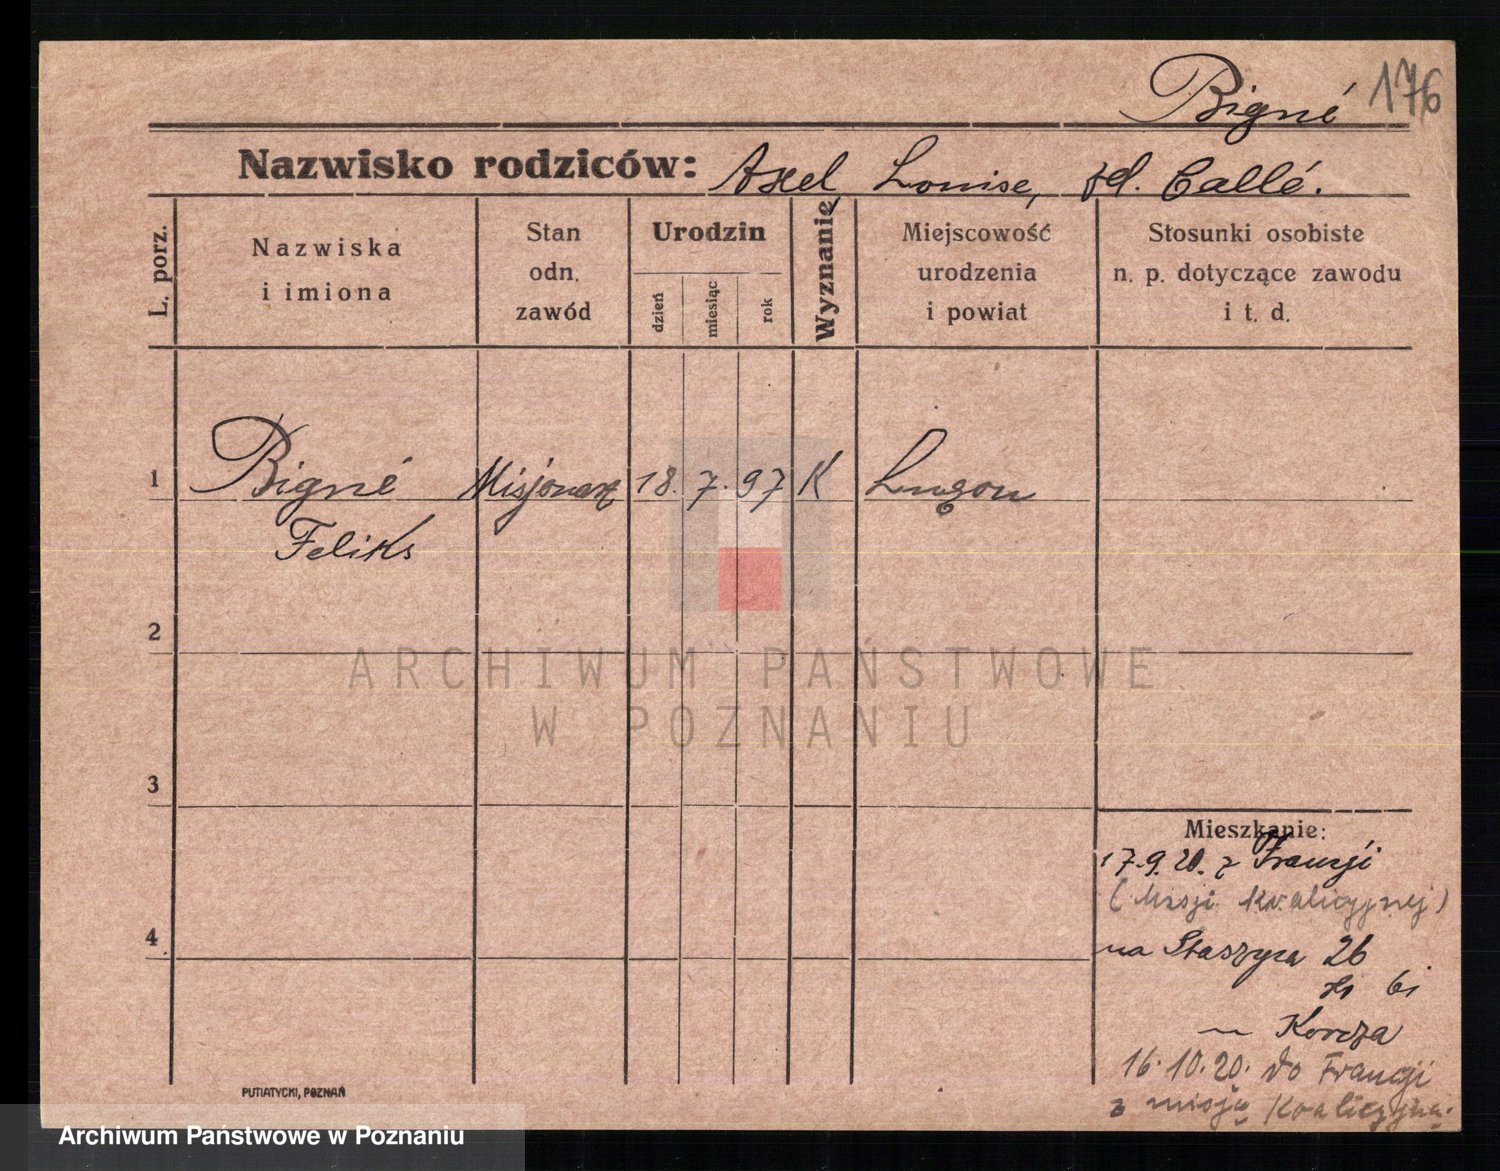 Bigné 176
Nazwisko rodziców: Axel, Louise, zd. Callé.
L. porz.
Nazwiska
i imiona
Stan
odn.
zawód
Urodzin
dzień
miesiąc
rok
Wyznanie
Miejscowość
urodzenia
i powiat
Stosunki osobiste
n. p. dotyczące zawodu
i t. d.
1 Bigné Misjonarz 18. 7. 97 K
Feliks
2
ARCHIWUM PAŃSTWOWE
W POZNANIU
3
Mieszkanie:
17.9.20. z Francji
(Misji Koalicyjnej)
4
na Staszyca 26
u Korcza
16.10.20. do Francji
z misją Koalicyjną.
PUTIATYCKI, POZNAŃ
Archiwum Państwowe w Poznaniu